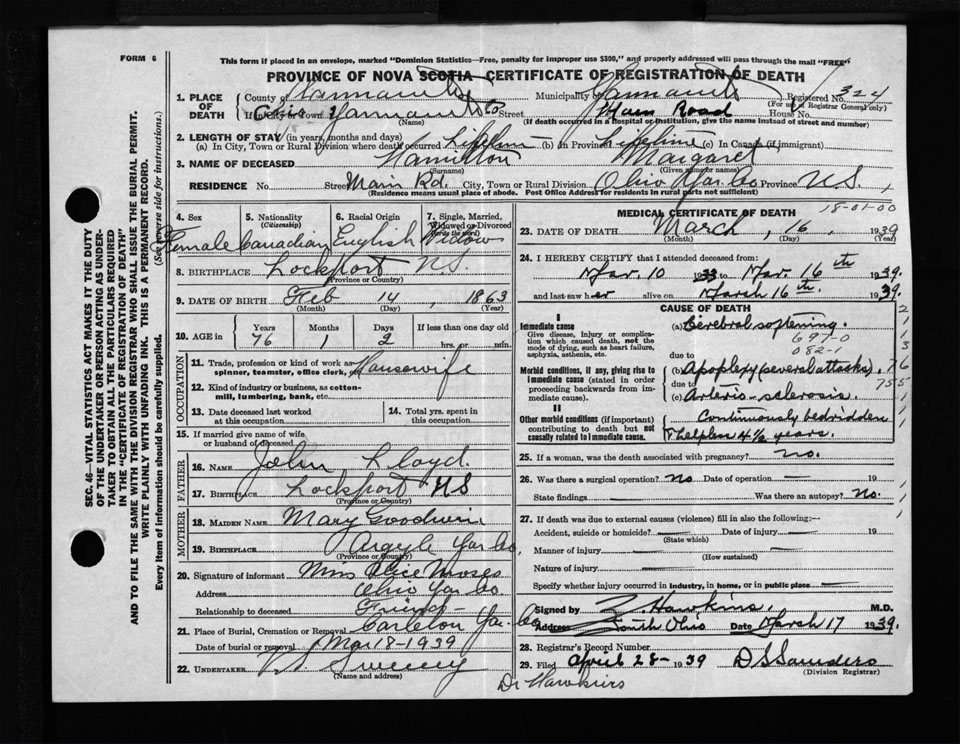 FORM 6
This form if placed in an envelope, marked "Dominion Statistics—Free, penalty for improper use $300," and properly addressed will pass through the mail "FREE"
PROVINCE OF NOVA SCOTIA—CERTIFICATE OF REGISTRATION OF DEATH
SEC. 46—VITAL STATISTICS ACT MAKES IT THE DUTY
OF THE UNDERTAKER OR PERSON ACTING AS UNDER-
TAKER TO OBTAIN ALL THE PARTICULARS REQUIRED
IN THE "CERTIFICATE OF REGISTRATION OF DEATH"
AND TO FILE THE SAME WITH THE DIVISION REGISTRAR WHO SHALL ISSUE THE BURIAL PERMIT.
WRITE PLAINLY WITH UNFADING INK. THIS IS A PERMANENT RECORD.
Every item of information should be carefully supplied. (See reverse side for instructions.)
1. PLACE OF DEATH County of Yarmouth Municipality of Yarmouth Registered No. 324
(For use of Registrar General only)
Ohio Yarmouth Co Street Main Road House No.
(Name) (If death occurred in a Hospital or Institution, give the name instead of street and number)
2. LENGTH OF STAY (in years, months and days)
(a) In City, Town or Rural Division where death occurred (b) In Province Lifetime (c) In Canada (if immigrant)
3. NAME OF DECEASED Hamilton Margaret
(Surname) (Given name or names)
RESIDENCE No. Street Main Rd. City, Town or Rural Division Ohio Yar. Co Province N.S.
(Residence means usual place of abode. Post Office Address for residents in rural parts not sufficient)
4. Sex Female
5. Nationality (Citizenship) Canadian
6. Racial Origin English
7. Single, Married, Widowed or Divorced (Write the word) Widow
8. BIRTHPLACE Lockport N.S.
(Province or Country)
9. DATE OF BIRTH Feb 14, 1863
(Month) (Day) (Year)
10. AGE in Years 76 Months 1 Days 2 If less than one day old hrs. or min.
OCCUPATION
11. Trade, profession or kind of work as spinner, teamster, office clerk, etc. Housewife
12. Kind of industry or business, as cotton-mill, lumbering, bank, etc.
13. Date deceased last worked at this occupation
14. Total yrs. spent in this occupation
15. If married give name of wife or husband of deceased
FATHER
16. NAME John Lloyd.
17. BIRTHPLACE Lockport NS
(Province or Country)
MOTHER
18. MAIDEN NAME Mary Goodwin
19. BIRTHPLACE Argyle Yar Co.
(Province or Country)
20. Signature of informant Miss Alice Moses
Address Ohio Yar Co
Relationship to deceased Friend—
21. Place of Burial, Cremation or Removal Carleton Yar. Co
Date of burial or removal Mar 18-1939
22. UNDERTAKER Sweeny
(Name and address)
MEDICAL CERTIFICATE OF DEATH
18-01-00
23. DATE OF DEATH March, 16, 1939
(Month) (Day) (Year)
24. I HEREBY CERTIFY that I attended deceased from:
Mar. 10 1939 to Mar. 16th 1939.
and last saw her alive on March 16th. 1939.
CAUSE OF DEATH
I
Immediate cause
Give disease, injury or complication which caused death, not the mode of dying, such as heart failure, asphyxia, asthenia, etc.
(a) Cerebral softening.
697-0
082-1
due to
Morbid conditions, if any, giving rise to immediate cause (stated in order proceeding backwards from immediate cause).
(b) Apoplexy (several attacks). 76
due to 755
(c) Arterio-sclerosis.
II
Other morbid conditions (if important) contributing to death but not causally related to immediate cause.
Continuously bedridden
& helpless 4½ years.
25. If a woman, was the death associated with pregnancy? no.
26. Was there a surgical operation? no Date of operation — 19
State findings — Was there an autopsy? no.
27. If death was due to external causes (violence) fill in also the following:—
Accident, suicide or homicide? — Date of injury — 19
(State which)
Manner of injury —
(How sustained)
Nature of injury —
Specify whether injury occurred in industry, in home, or in public place —
Signed by Z. Hawkins. M.D.
Address South Ohio Date March 17 1939.
28. Registrar's Record Number
29. Filed April 28- 1939 D S Saunders
(Division Registrar)
Dr Hawkins